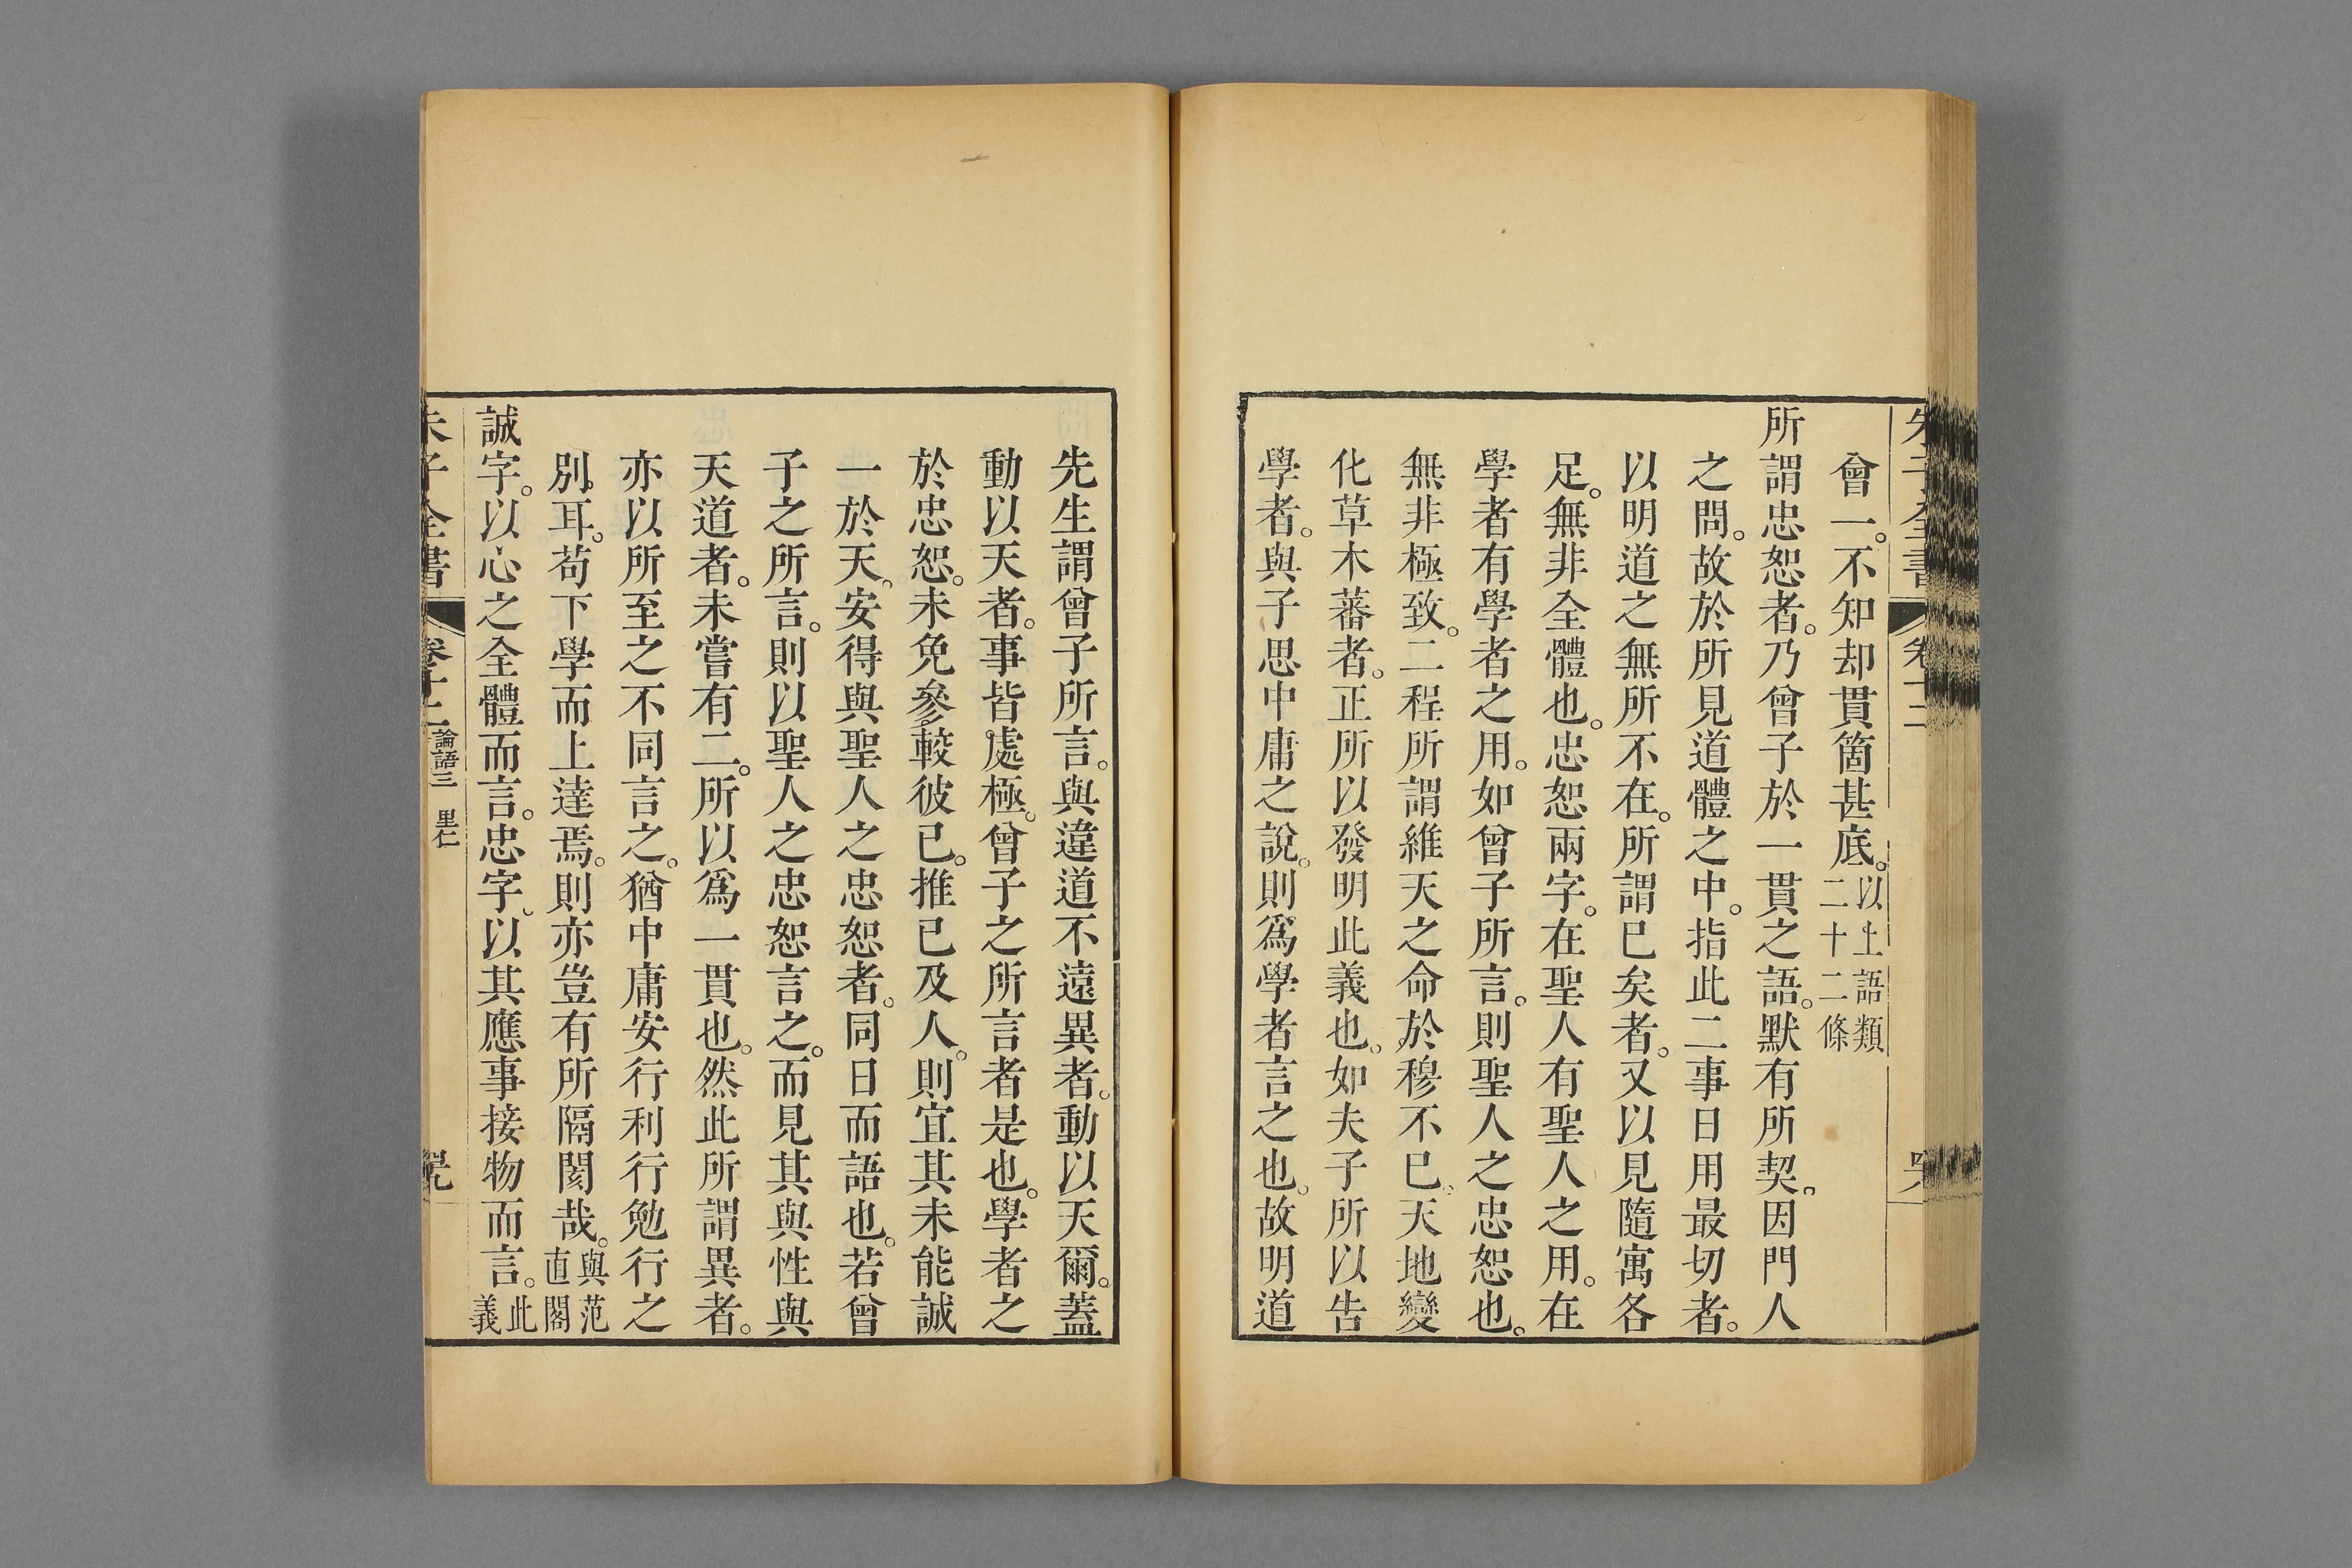 朱子全書 卷十二
會一。不知却貫箇甚底。以上語類二十二條
所謂忠恕者。乃曾子於一貫之語。默有所契。因門人
之問。故於所見道體之中。指此二事日用最切者。
以明道之無所不在。所謂已矣者。又以見隨寓各
足。無非全體也。忠恕兩字。在聖人有聖人之用。在
學者有學者之用。如曾子所言。則聖人之忠恕也。
無非極致。二程所謂維天之命。於穆不已。天地變
化草木蕃者。正所以發明此義也。如夫子所以告
學者。與子思中庸之說。則爲學者言之也。故明道
先生謂曾子所言。與違道不遠異者。動以天爾。蓋
動以天者。事皆處極。曾子之所言者是也。學者之
於忠恕。未免參較彼已。推已及人。則宜其未能誠
一於天。安得與聖人之忠恕者。同日而語也。若曾
子之所言。則以聖人之忠恕言之。而見其與性與
天道者。未嘗有二。所以爲一貫也。然此所謂異者。
亦以所至之不同言之。猶中庸安行利行勉行之
別耳。苟下學而上達焉。則亦豈有所隔閡哉。與范直閣
誠字。以心之全體而言。忠字。以其應事接物而言。此義
朱子全書 卷十二 論語三 里仁 罕九